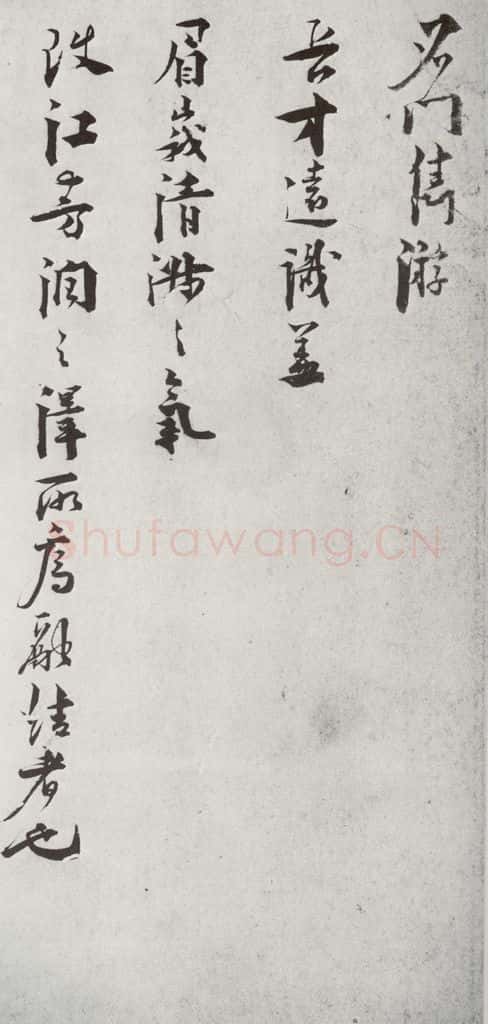 名門儁游
長才遠識蓋
眉峩清淑之氣
江旁潤之澤所為融結者也
Shufawang.CN